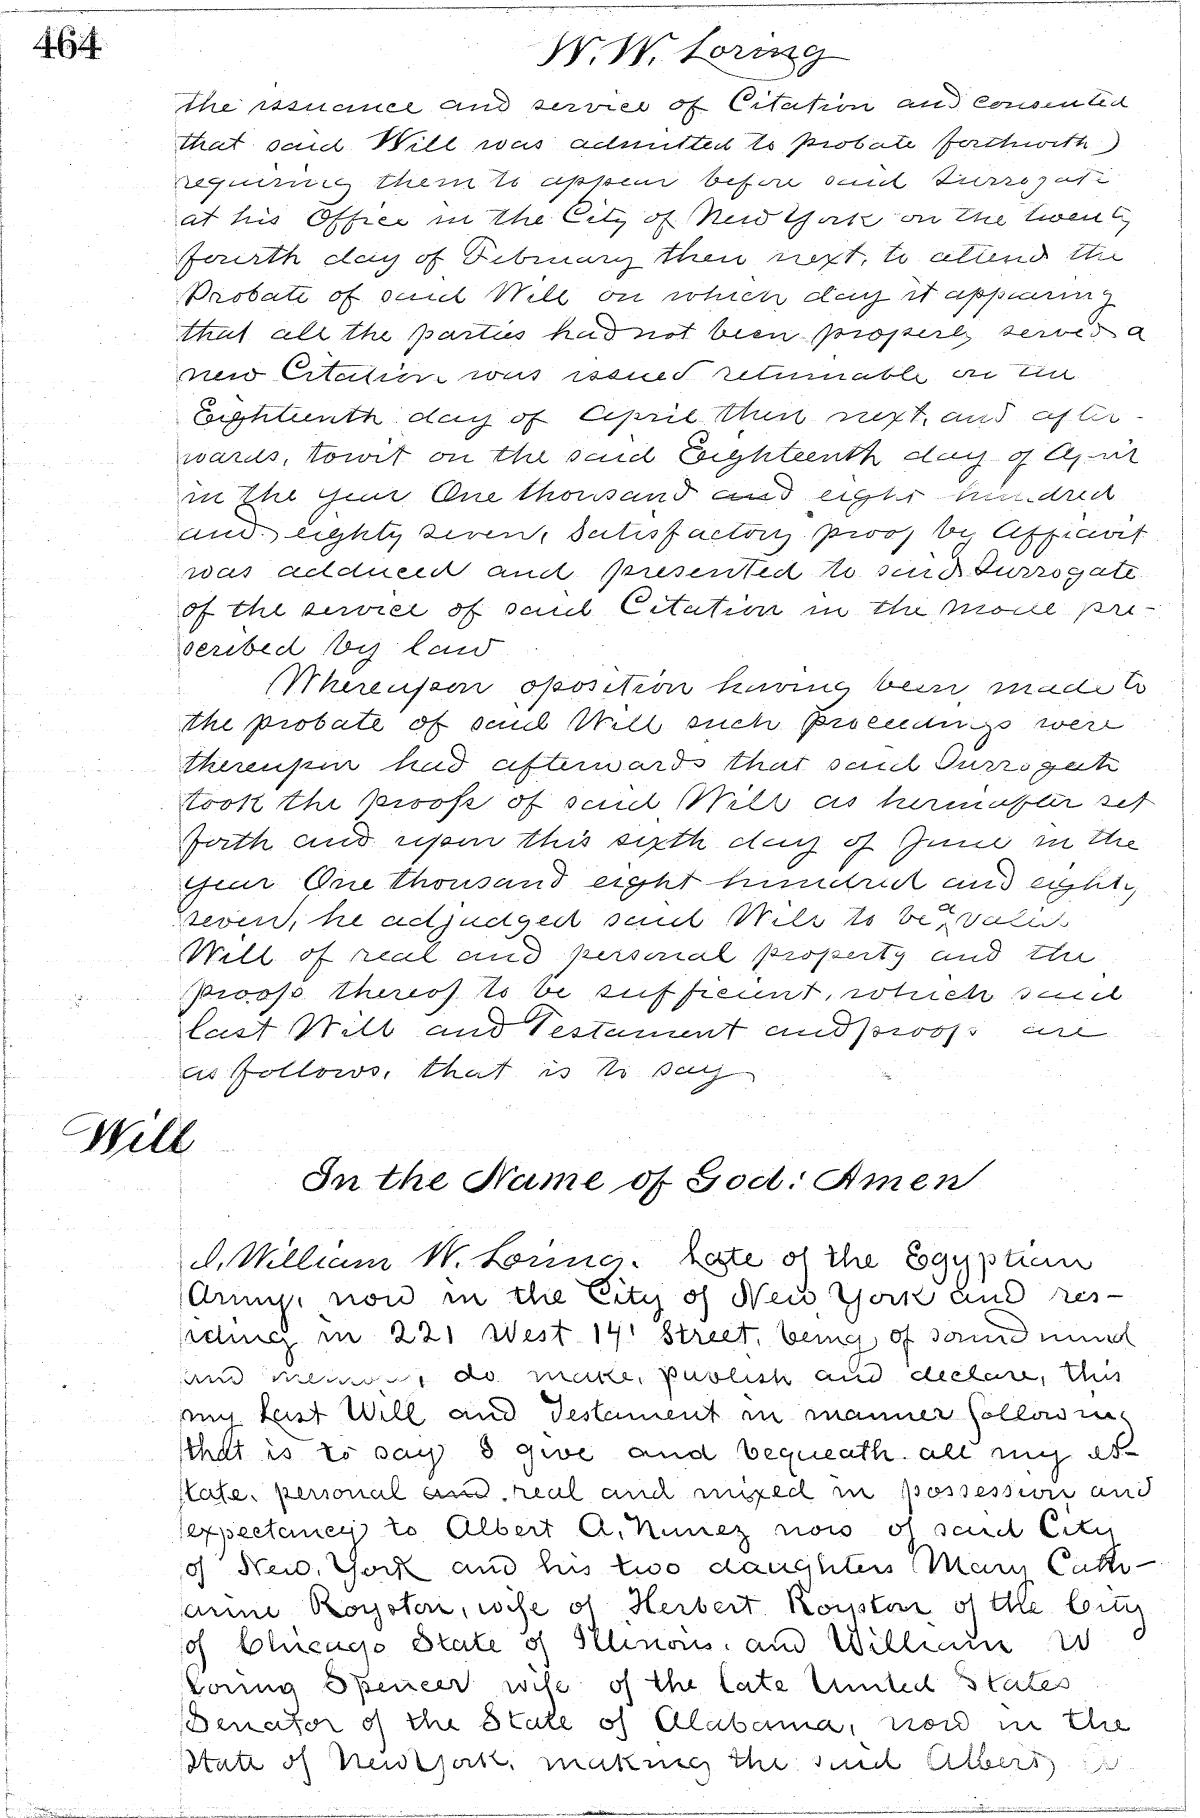 464
W. W. Loring
the issuance and service of Citation and consented
that said Will was admitted to probate forthwith)
requiring them to appear before said Surrogate
at his Office in the City of New York on the twenty
fourth day of February then next, to attend the
Probate of said Will on which day it appearing
that all the parties had not been properly served a
new Citation was issued returnable on the
Eighteenth day of April then next, and after-
wards, towit on the said Eighteenth day of April
in the year One thousand and eight hundred
and eighty seven, Satisfactory proof by Affidavit
was adduced and presented to said Surrogate
of the service of said Citation in the mode pre-
scribed by law
Whereupon oposition having been made to
the probate of said Will such proceedings were
thereupon had afterwards that said Surrogate
took the proofs of said Will as hereinafter set
forth and upon this sixth day of June in the
year One thousand eight hundred and eighty
seven, he adjudged said Will to be a valid
Will of real and personal property and the
proofs thereof to be sufficient, which said
last Will and Testament and proofs are
as follows, that is to say
Will
In the Name of God: Amen
I, William W. Loring. Late of the Egyptian
Army, now in the City of New York and res-
iding in 221 West 14' Street, being of sound mind
and memory, do make, publish and declare, this
my Last Will and Testament in manner following
that is to say I give and bequeath all my es-
tate, personal and real and mixed in possession and
expectancy to Albert A. Nunez now of said City
of New York and his two daughters Mary Cath-
arine Royston, wife of Herbert Royston of the City
of Chicago State of Illinois, and William W
Loring Spencer wife of the late United States
Senator of the State of Alabama, now in the
State of New York, making the said Albert